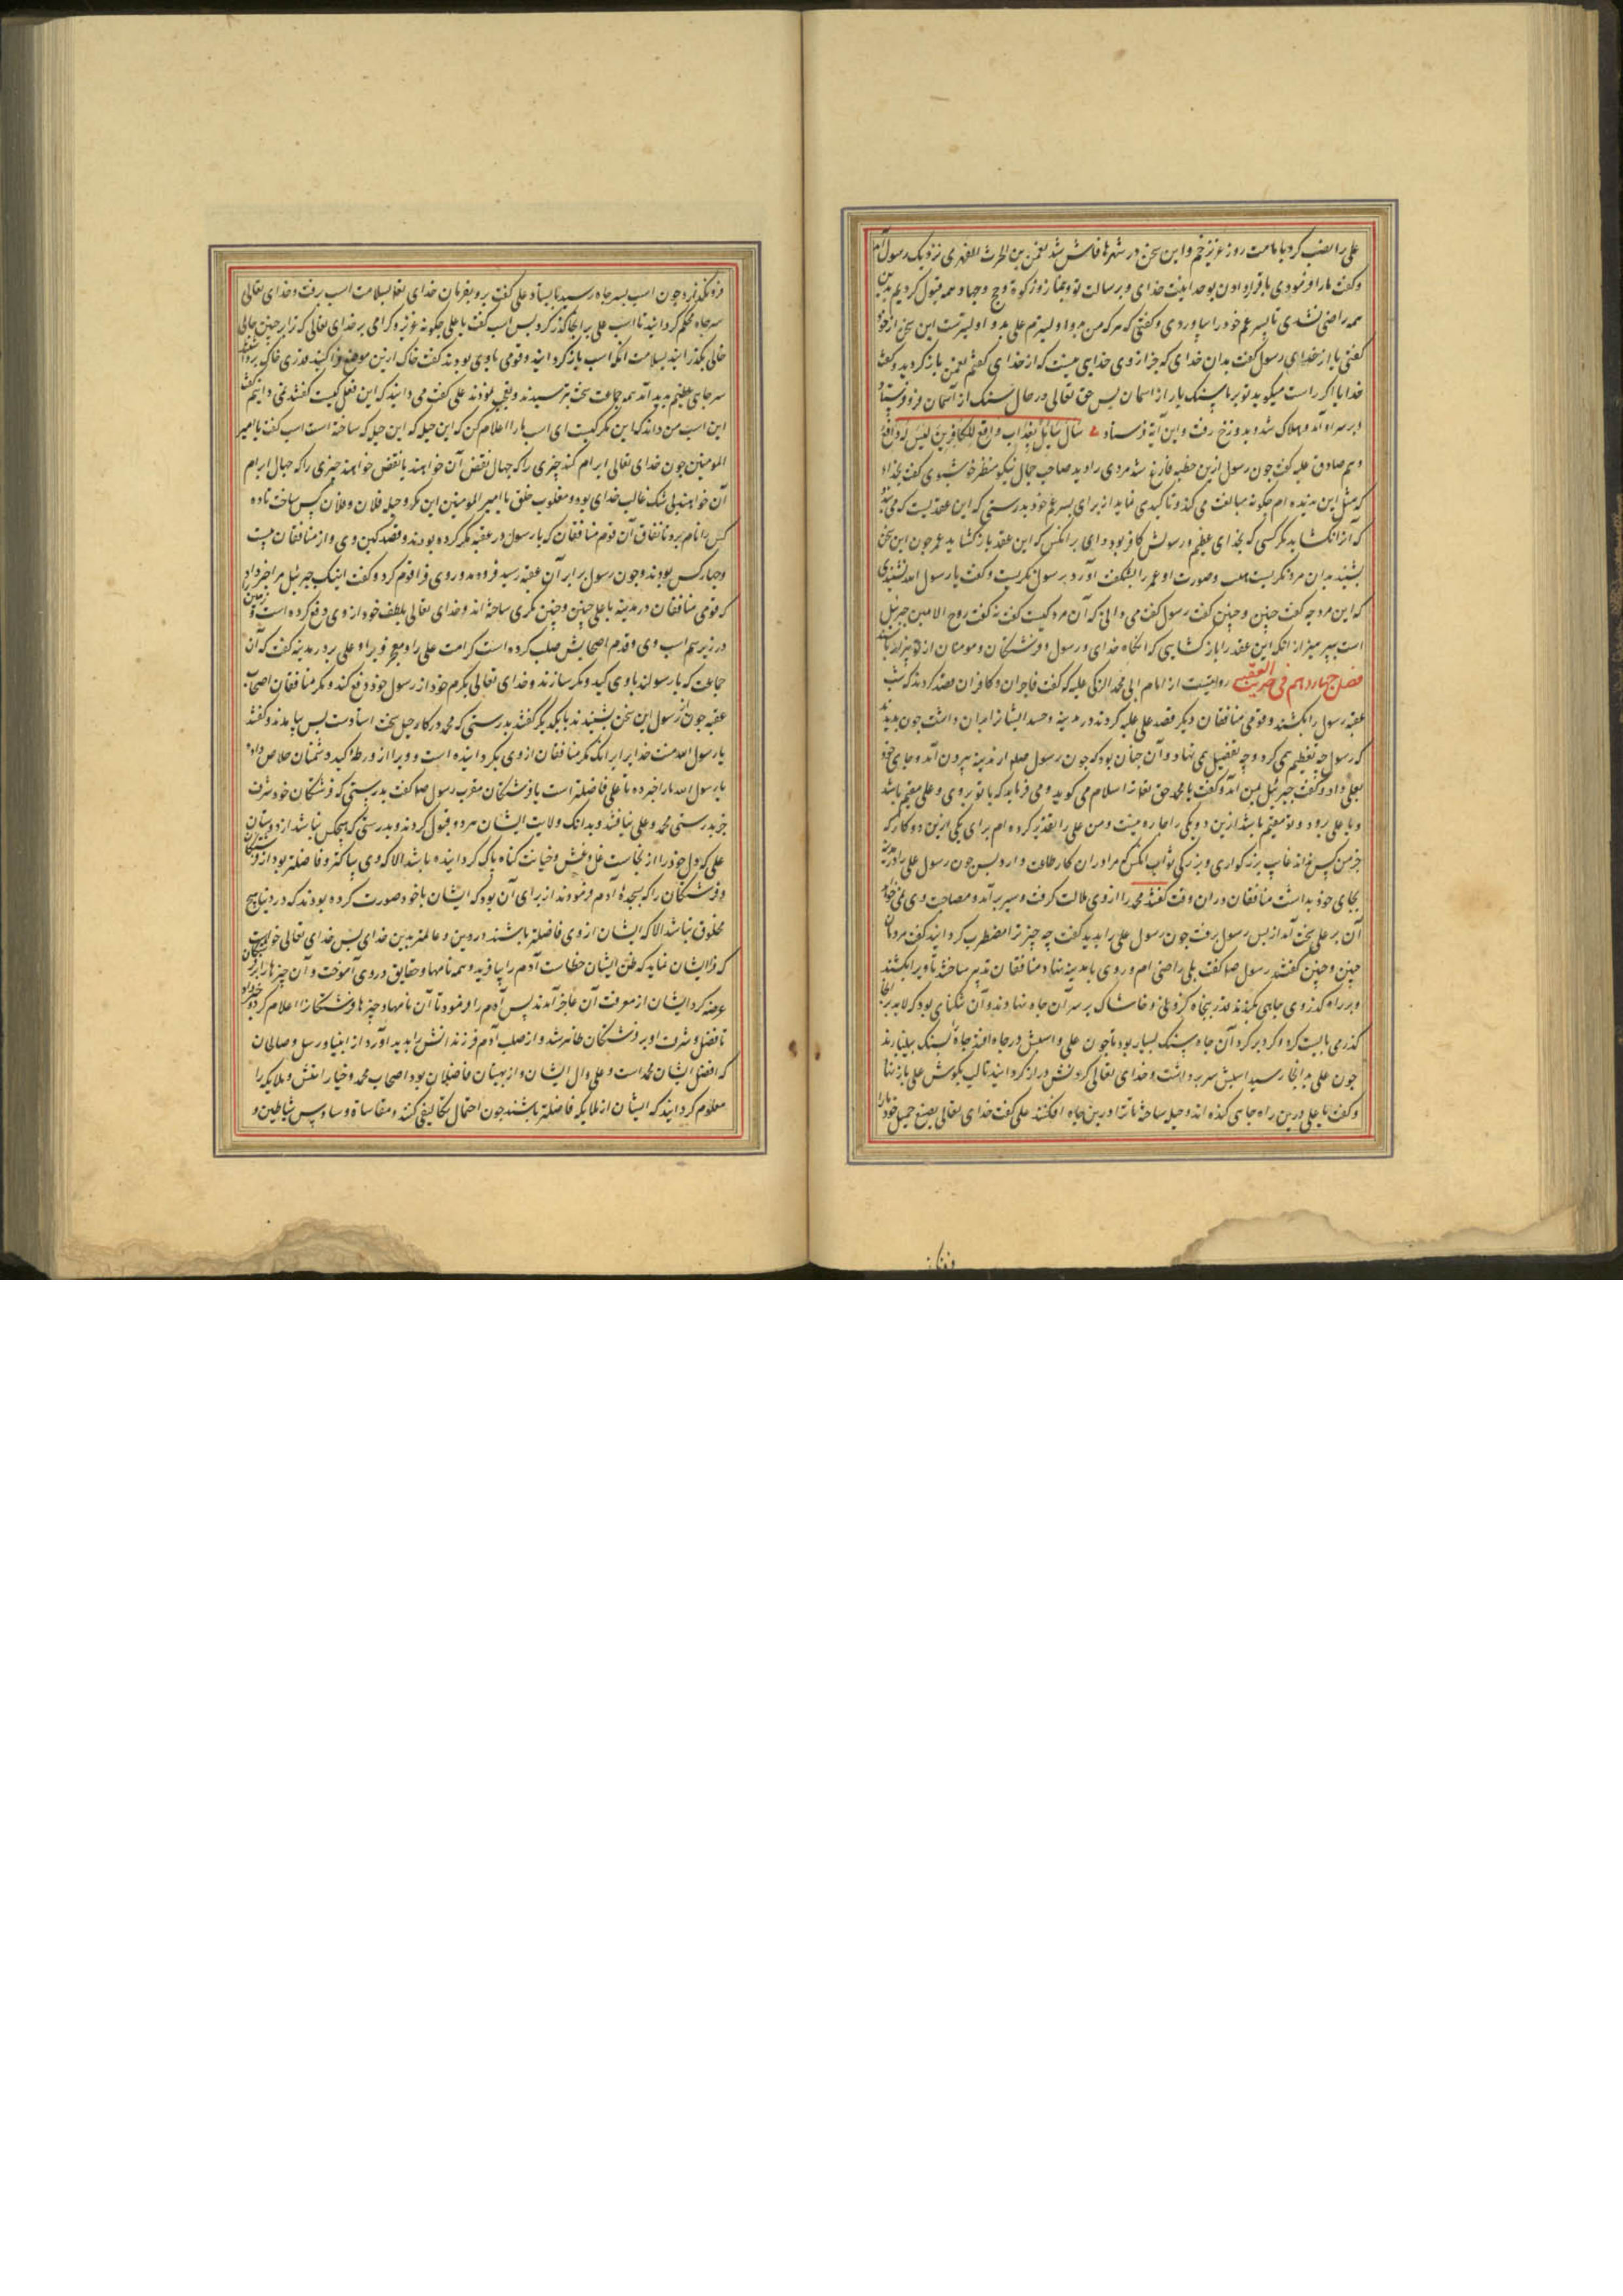 علی را نصب کرد بامامت روز غدیر خم و این سخن در شهرها فاش شد نعمن بن الحرث الفهری نزدیک رسول آمد
و کفت ما را فرمودی باقرار دادن بوحدانیت خدای و برسالت تو و بنماز و زکوة و حج و جهاد و همه قبول کردیم بدین
همه راضی نشدی تا پسر عم خود را بیاوردی و کفتی که هر که من مولی اولیترم علی بدو اولیترست این سخن از خود
کفتی یا از خدای رسول کفت بدان خدای که جز از وی خدایی نیست که از خدای کفتم نعمن باز کردید و کفت
خدایا اکر راست میکوید تو بر ما سنک بار از اسمان پس حق تعالی در حال سنک از آسمان فرو فرستاد
و بر سر او آمد و هلاک شد و بدوزخ رفت و این آیة فرستاد سَأَلَ سَائِلٌ بِعَذَابٍ وَاقِعٍ لِلْكَافِرِينَ لَيْسَ لَهُ دَافِعٌ
و هم صادق علیه کفت چون رسول ازین خطبه فارغ شد مردی را دید صاحب جمال نیکو منظر خوش بوی کفت بخدا
که مثل این ندیده ام چکونه مبالغت می کند و تاکیدی نماید از برای پسر عم خود بدرستی که این عقدیست که می بندد
که آنرا نکشاید مکر کسی که بخدای عظیم و رسولش کافر بود وای بر انکس که این عقد باز کشاید عمر چون این سخن
بشنید بدان مرد نکریست هیئت و صورت او عمر را بشکفت آورد برسول نکریست و کفت یا رسول الله نشنیدی
که این مرد چه کفت چنین و چنین کفت رسول کفت می دانی که آن مرد کیست کفت نه کفت روح الامین جبرئیل
است بپرهیز از انکه این عقد را باز کشایی که انکاه خدای و رسول او فرشتکان و مومنان از تو بیزار باشند
فصل چهاردهم فی حدیث العقبه روایتست از امام ابی محمد الزکی علیه که کفت فاجران و کافران قصد کردند که شب
عقبه رسول را بکشند و قومی منافقان دیکر قصد علی علیه کردند در مدینه و حسد ایشانرا بران داشت چون بدیدند
که رسول چه تعظیم می کرد و چه تفضیل می نهاد و آن چنان بود که چون رسول صلم از مدینه بیرون آمد و جای خود
بعلی داد و کفت جبرئیل بمن آمد و کفت یا محمد حق تعالی ترا سلام می کوید و می فرماید که یا تو بروی و علی مقیم باشد
و یا علی برود و تو مقیم باشی ازین دو یکی را چاره نیست و من علی را تقدیر کرده ام برای یکی ازین دو کار که
جز من کس نداند غایت بزرکواری و بزرکی ثواب انکس که مرا دران کار طاعت دارد پس چون رسول علی را در مدینه
بجای خود بداشت منافقان دران وقت کفتند محمد را از وی ملالت کرفت و سیر برآمد و مصاحبت وی نمی خواهد
آن بر علی سخت آمد از پس رسول برفت چون رسول علی را بدید کفت چه چیز ترا مضطرب کردانید کفت مردمان
چنین و چنین کفتند رسول صلم کفت بلی راضی ام و روی با مدینه نهاد و منافقان تدبیر ساختند تا ویرا بکشند
و بر راه کذر وی چاهی بکندند قدر پنجاه کز و نی و خاشاک بر سر آن چاه نهادند و آن تنکنایی بود که لابد برانجا
کذر می بایست کرد و کرد بر کرد آن چاه سنک بسیار بود تا چون علی و اسبش در چاه افتد چاه بسنک بینبارند
چون علی بدانجا رسید اسبش سر برداشت و خدای تعالی کردنش دراز کردانید تا لب بکوش علی باز نهاد
و کفت یا علی درین راه چاهی کنده اند و حیله ساخته تا ترا درین چاه افکنند علی کفت خدای تعالی بصنع جمیل خود ترا
فرو نکذارد چون اسب بسر چاه رسید بایستاد علی کفت برو بفرمان خدای تعالی بسلامت اسب برفت و خدای تعالی
سر چاه محکم کردانید تا اسب علی بر انجا کذر کرد پس اسب کفت یا علی چکونه عزیز و کرامی بر خدای تعالی که ترا بر چنین جایی
خالی بکذرانید بسلامت انکه اسب باز کردانید و قومی با وی بودند کفت خاک ازین موضع وا کنید قدری خاک برداشتند
سر چاهی عظیم پدید آمد همه جماعت سخت بترسیدند و بتعجب بودند علی کفت می دانید که این فعل کیست کفتند نمی دانیم کفت
این اسب من داند که این مکر کیست ای اسب ما را اعلام کن که این حیله که ساخته است اسب کفت یا امیر
المومنین چون خدای تعالی ابرام کند چیزی را که جهال نقض آن خواهند یا نقض خواهد چیزی را که جهال ابرام
آن خواهند بی شک غالب خدای بود و مغلوب خلق یا امیر المومنین این مکر و حیله فلان و فلان کس ساخت تا ده
کس را نام برد باتفاق آن قوم منافقان که با رسول در عقبه مکر کرده بودند و قصد کین وی و از منافقان بیست
و چهار کس بودند و چون رسول برابر آن عقبه رسید فروده و روی فرا قوم کرد و کفت اینک جبرئیل مرا خبر داد
که قومی منافقان در مدینه با علی چنین و چنین مکری ساخته اند و خدای تعالی بلطف خود از وی دفع کرده است و زمین
در زیر سم اسب وی و قدم اصحابش صلب کرده است کرامت علی را و هیچ فرو برد او علی برد در مدینه کفت که آن
جماعت که با رسولند با وی کید و مکر سازند و خدای تعالی بکرم خود از رسول خود دفع کند و مکر منافقان اصحاب
عقبه چون از رسول این سخن بشنیدند با یکدیکر کفتند بدرستی که محمد در کار و حیل سخت استادست پس بیامدند و کفتند
یا رسول الله منت خدایرا بر انک مکر منافقان از وی بکردانیده است و ویرا از ورطه کید دشمنان خلاص داد
یا رسول الله ما را خبر ده تا علی فاضلتر است یا فرشتکان مقرب رسول صلم کفت بدرستی که فرشتکان خود شرف
جز بدرستی محمد و علی نیافتند و بدانک ولایت ایشان هر دو قبول کردند و بدرستی که هیچکس نباشد از دوستان
علی که دل خود را از نجاست غل و غش و خیانت کناه پاک کردانیده باشد الا که وی پاکتر و فاضلتر بود از فرشتکان
و فرشتکان را که بسجده آدم فرمودند از برای آن بود که ایشان با خود صورت کرده بودند که در دنیا هیچ
مخلوق نباشد الا که ایشان از وی فاضلتر باشند در دین و عالمتر بدین خدای پس خدای تعالی خواست
که فرا ایشان نماید که ظن ایشان خطاست آدم را بیافرید و همه نامها و حقایق در وی آموخت و آن چیزها را بر فرشتکان
عرضه کرد ایشان از معرفت آن عاجز آمدند پس آدم را فرمود تا آن نامها و چیزها فرشتکانرا اعلام کرد و خبر داد
تا فضل و شرف او بر فرشتکان ظاهر شد و از صلب آدم فرزندانش را پدید آورد از انبیا و رسل و صالحان
که افضل ایشان محمد است و علی و آل ایشان و از بهینان فاضلان بود اصحاب محمد و خیار امتش و ملایکه را
معلوم کردانید که ایشان از ملایکه فاضلتر باشند چون احتمال تکالیف کنند و مقاسات وساوس شیاطین و